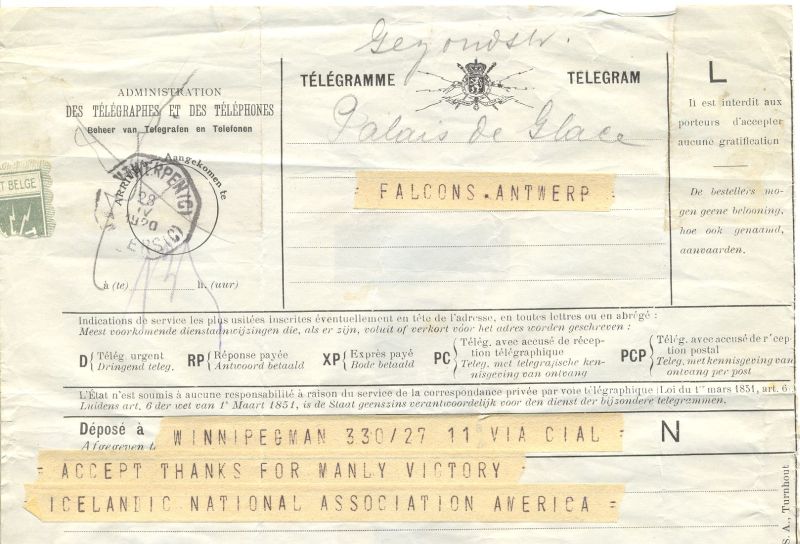 Gezondstr.
TÉLÉGRAMME TELEGRAM
Palais de Glace
FALCONS.ANTWERP =
ADMINISTRATION
DES TÉLÉGRAPHES ET DES TÉLÉPHONES
Beheer van Telegrafen en Telefonen
Aangekomen te
ANTWERPEN (C)
28
IV
1920
ERS (C)
à (te) h. (uur)
T BELGE
L
Il est interdit aux
porteurs d'accepter
aucune gratification
De bestellers mo-
gen geene belooning,
hoe ook genaamd,
aanvaarden.
Indications de service les plus usitées inscrites éventuellement en tête de l'adresse, en toutes lettres ou en abrégé :
Meest voorkomende dienstaanwijzingen die, als er zijn, voluit of verkort vóór het adres worden geschreven :
D { Télég. urgent
Dringend teleg.
RP { Réponse payée
Antwoord betaald
XP { Exprès payé
Bode betaald
PC { Télég. avec accusé de récep-
tion télégraphique
Teleg. met telegrafische ken-
nisgeving van ontvang
PCP { Télég. avec accusé de récep-
tion postal
Teleg. met kennisgeving van
ontvang per post
L'État n'est soumis à aucune responsabilité à raison du service de la correspondance privée par voie télégraphique (Loi du 1er mars 1851, art. 6
Luidens art. 6 der wet van 1e Maart 1851, is de Staat geenszins verantwoordelijk voor den dienst der bijzondere telegrammen.
Déposé à
Afgegeven t
WINNIPEGMAN 330/27 11 VIA CIAL =
N
ACCEPT THANKS FOR MANLY VICTORY
ICELANDIC NATIONAL ASSOCIATION AMERICA =
S. A., Turnhout